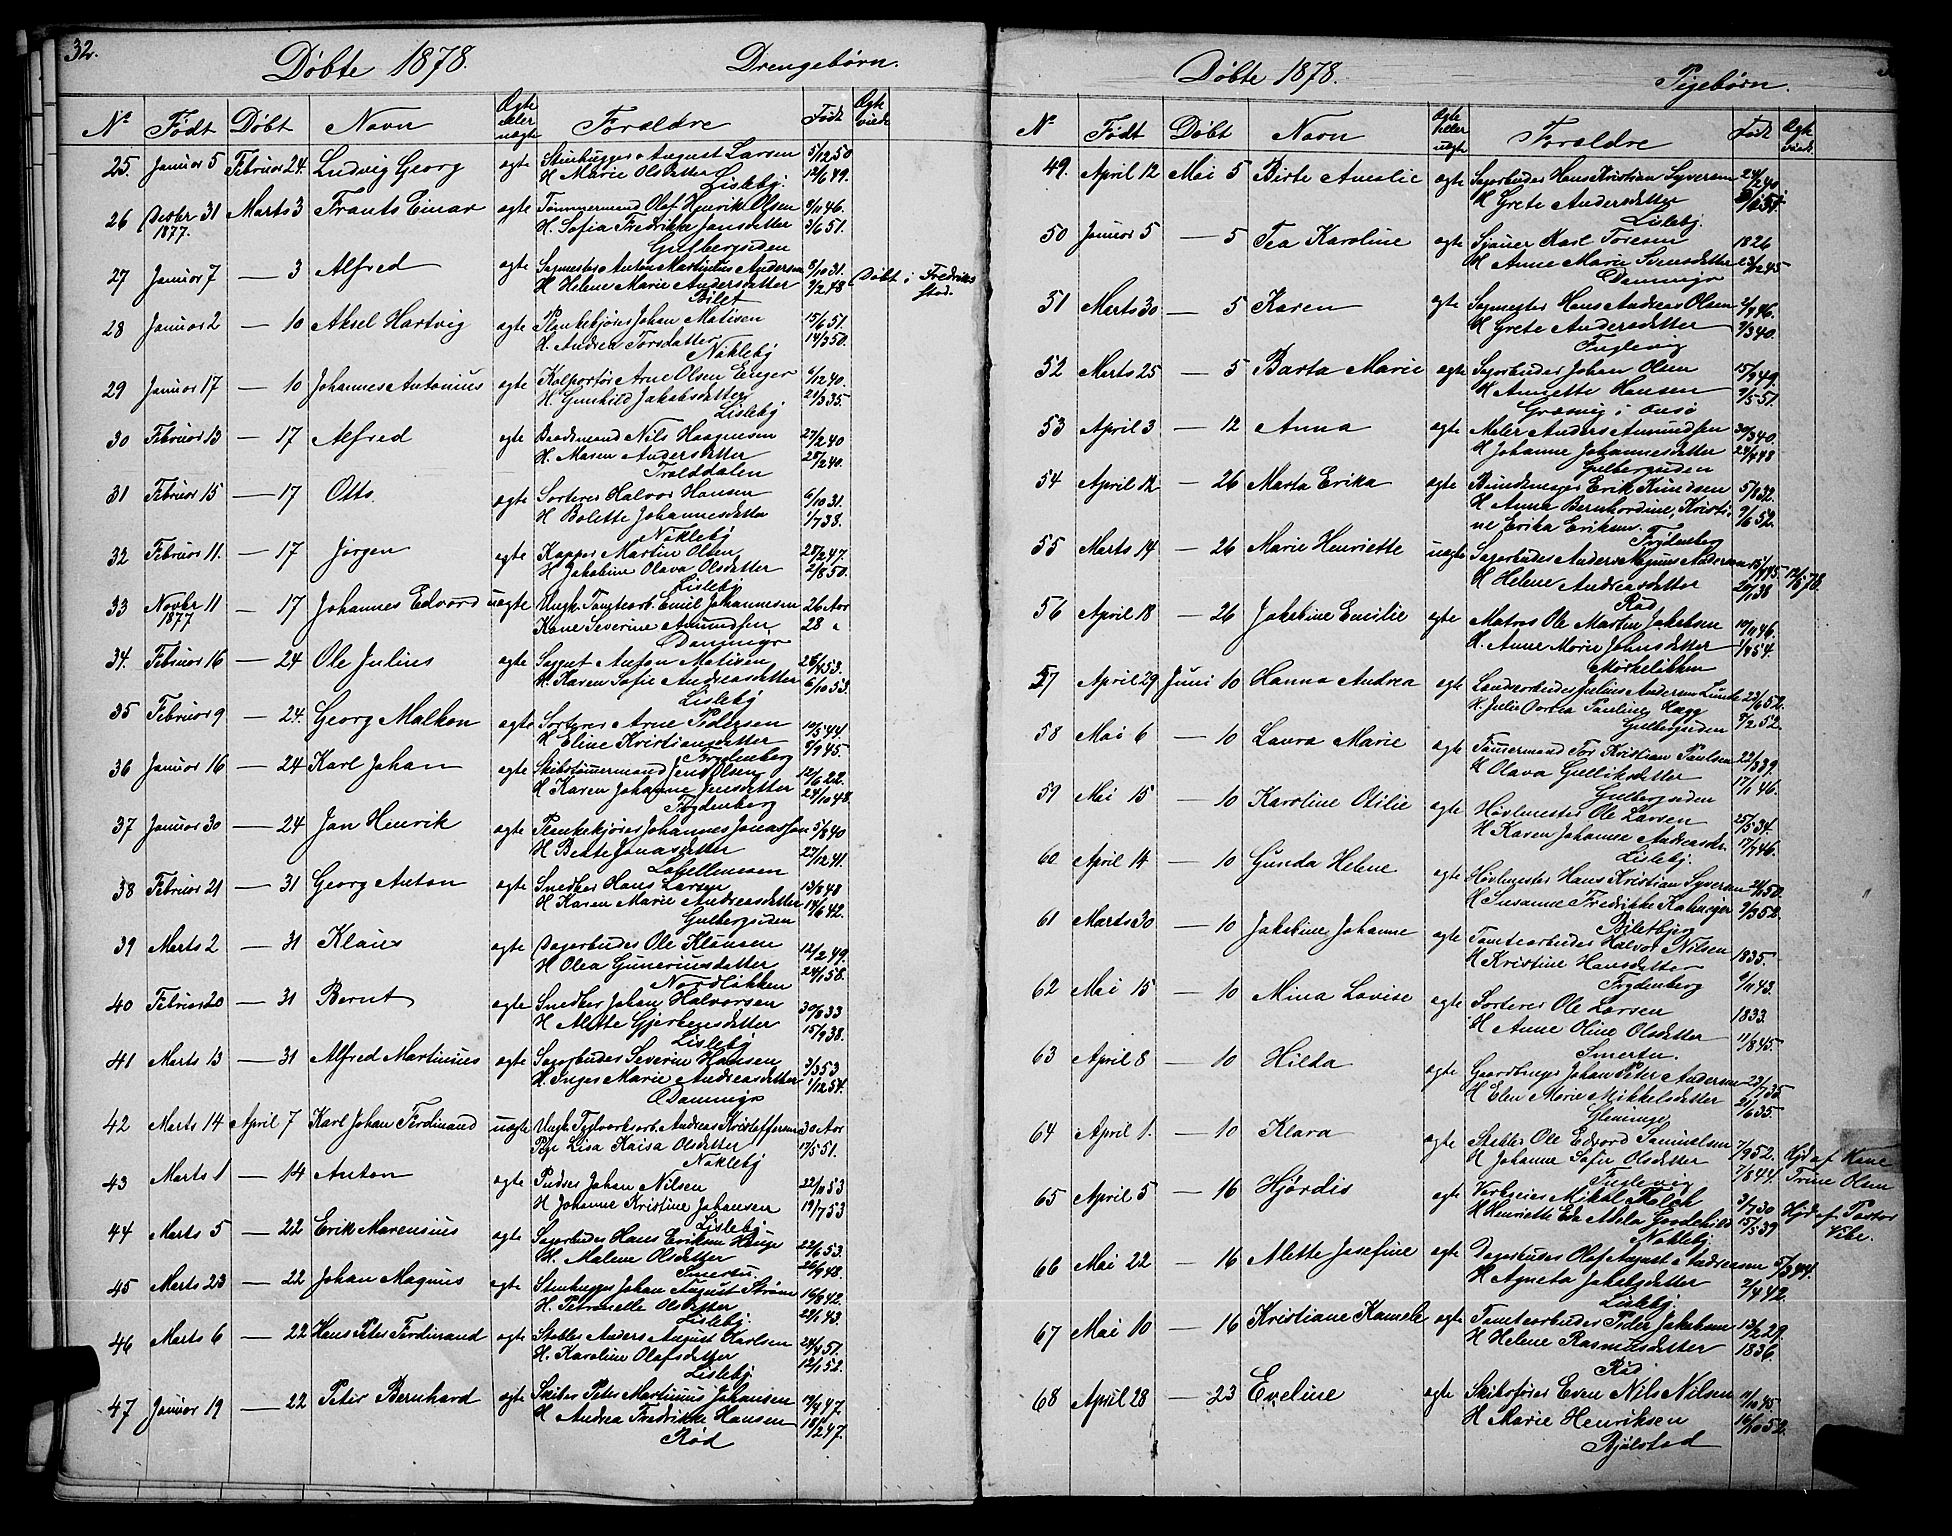 32.
Døbte 1878.
Drengebørn.
No Født Døbt Navn Ægte eller uægte Forældre Født Ægte viede
25. Januar 5 Februar 24. Ludvig Georg ægte Stenhugger August Larsen 5/12 50
H. Marie Olsdatter 12/6 49.
Lisleby.
26 Desbr 31 1877. Marts 3 Frants Einar ægte Tømmermand Olaf Henrik Olsen 9/11 46.
H. Sofia Fredrikke Jansdatter 3/6 51.
Gulbergsiden
27 Januar 7 — 3 Alfred ægte Sagmester Anton Martinius Andersen 8/10 31. Døbt i Fredriks
H Helene Marie Andersdatter 9/2 48 stad.
Bilet
28 Januar 2 — 10 Aksel Hartvig ægte Plankekjører Johan Matisen 15/6 51.
H. Andrea Torsdatter 14/3 50.
Nøkleby
29 Januar 17 — 10 Johannes Antonius ægte Kolportør Arne Olsen Enger 6/12 40.
H. Gunhild Jakobsdatter 21/3 35.
Lisleby
30 Februar 13 — 17 Alfred ægte Nils Haagensen 27/2 40
H. Maren Andersdatter 28/2 40.
Trolddalen
31 Februar 15 — 17 Otto. ægte Sorterer Halvor Hansen 6/10 31.
H Bolette Johannesdatter 1/7 38.
Nøkleby
32 Februar 11. — 17 Jørgen ægte Kapper Martin Olsen 28/2 47.
H Jakobine Olava Olsdatter 2/8 50.
Lisleby
33 Novbr 11 1877 — 17 Johannes Edvard uægte Ungk. Tomtearb. Emil Johannesen 26 Aar
Kone Severine Amundsen 28 "
Dammyr
34. Februar 16 — 24 Ole Julius ægte Anton Matisen 28/1 53.
H. Karen Sofie Andreasdatter 6/10 53.
Lisleby
35 Februar 9 — 24. Georg Malkon ægte Sorterer Arne Pedersen 10/5 44
H Eline Kristiansdatter 9/9 45.
Frydenberg
36 Januar 16 — 24 Karl Johan ægte Skibstømmermand Jens Olsen 12/1 22.
H Karen Johanne Jensdatter 24/10 48.
Frydenberg
37 Januar 30 — 24 Jan Henrik ægte Plankekjører Johannes Jonassen 5/8 40
H Beate Jonasdatter 27/12 41.
38 Februar 21 — 31 Georg Anton ægte Snedker Hans Larsen 13/8 48
H Karen Marie Andreasdatter 14/6 42.
Gulbergsiden
39 Marts 2 — 31 Klaus ægte Dagarbeider Ole Klausen 12/2 49.
H Olea Guneriusdatter 24/1 58.
Nordløkken
40 Februar 20 — 31 Bernt ægte Snedker Johan Halvorsen 30/8 33
H Alette Gjerbensdatter 15/9 38.
Lisleby
41 Marts 13 — 31 Alfred Martinius ægte Sagarbeider Severin Hansen 3/3 53
H. Inger Marie Andreasdatter 1/12 54.
Dammyr
42 Marts 14 April 7 Karl Johan Ferdinand uægte Ungk. Teglværksarb. Andreas Kristoffersen 30 Aar
Pige Lisa Kaisa Olsdatter 17/5 51.
Nøkleby
43 Marts 1 — 14 Anton ægte Pudser Johan Nilsen 22/11 53
H Johanne Kristine Johansen 19/7 53
Lisleby
44 Marts 5 — 22 Erik Marensius ægte Sagarbeider Hans Eriksen Hauge 22/6 53.
H. Malene Olsdatter 26/9 48.
Smertu.
45 Marts 23 — 22 Johan Magnus ægte Stenhugger Johan August Strøm 16/8 42.
H. Petronelle Olsdatter 29/1 43.
Lisleby.
46 Marts 6 — 22 Hans Peter Ferdinand ægte Stabler Anders August Karlsen 24/9 51.
H. Karoline Olafsdatter 12/1 52.
Lisleby.
47 Januar 19 — 22 Peter Bernhard ægte Skiber Peter Martinius Johansen 19/9 47.
H Andrea Fredrikke Hansen 18/2 47.
Rød
Døbte 1878.
Pigebørn.
No Født Døbt Navn Ægte eller uægte Forældre Født Ægte viede.
49. April 12 Mai 5 Birte Amalie ægte Sagarbeider Hans Kristian Syversen 24/2 40
H Grete Andersdatter
Lisleby.
50 Januar 5 — 5 Tea Karoline ægte Sjauer Karl Toresen 1826
H Anne Marie Svensdatter 23/12 45
Dammyr
51 Marts 30 — 5 Karen ægte Sagmester Hans Andreas Olsen 2/9 46.
H Grete Andersdatter 9/3 40.
Fuglevig
52 Marts 25 — 5 Barta Marie ægte Sagarbeider Johan Olsen 15/9 49.
H Annette Hansen 9/5 51.
Græsvig i Onsø
53 April 3 — 12 Anna ægte Maler Anders Amundsen 30/3 40.
H Johanne Johannesdatter 24/9 48
Gulbergsiden
54 April 12 — 26 Marta Erika ægte Erik Knudsen 5/1 32.
H Anna Bernhardine Kristi- 9/6 52.
ne Erika Eriksen.
Frydenberg
55 Marts 14 — 26 Marie Henriette uægte Sagarbeider Anders Magnus Andersen 15/9 45 12/5 78.
H Helene Andreasdatter 20/1 38
Rød
56 April 18 — 26 Jakobine Emilie ægte Matros Ole Martin Jakobsen 10/11 46.
H. Anne Marie Johnsdatter 1/8 54.
Mørkeløkken
57 April 29 Juni 10 Hanna Andrea ægte Landarbeider Julius Andersen Lunde 22/6 52.
H. Julie Dortea Pauline Hagg 8/2 52
Gulbergsiden
58 Mai 6 — 10 Laura Marie ægte Tømmermand Tor Kristian Paulsen 22/3 39.
H Olava Gulliksdatter 17/1 46.
Gulbergsiden
59 Mai 15 — 10 Karoline Otilie ægte Høvlmester Ole Larsen 25/5 34.
H Karen Johanne Andreasdtr. 17/7 46.
Lisleby.
60 April 14 — 10 Gunda Helene ægte Høvlmester Hans Kristian Syversen 24/1 50
H Susanne Fredrikke 9/3 52.
Biletbjerg
61 Marts 30 — 10 Jakobine Johanne ægte Tomtearbeider Halvor Nilsen 1835.
H Kristine Hansdatter 6/11 43.
Frydenberg
62 Mai 15 — 10 Mina Lovise ægte Sorterer Ole Larsen 1833.
H Anne Oline Olsdatter 11/8 45.
Smertu.
63 April 8 — 10 Hilda ægte Gaardbruger Johan Peter Andersen 23/7 35
H Elen Marie Mikkelsdatter 21/6 35.
Gleninge
64 April 1. — 10 Klara ægte Stabler Ole Edvard Samuelsen 7/9 52. Hjd af Kone
H Johanne Sofie Olsdatter 7/8 44. Trine Olsen
Fuglevig
65 April 5 — 16 Hjørdis ægte Værkseier Mikal 3/7 30 Hjd af Pastor
H Henriette Eva Abela 15/5 39 Vibe.
Nøkleby
66 Mai 22 — 16 Alette Josefine ægte Dagarbeider Olaf August Andreasen 5/3 44.
H Agneta Jakobsdatter 2/4 42.
Lisleby
67 Mai 10 — 16 Kristiane Kamela ægte Tomtearbeider Peder Jakobsen 13/2 29.
H Helene Rasmusdatter 1836.
Rød
68 April 28 — 23 Eveline ægte Skibsfører Even Nils Nilsen 11/10 45
H Marie Henriksen 16/10 52.
Bjølstad